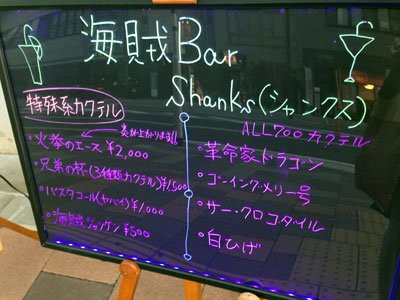 海賊Bar
Shanks(シャンクス)
特殊系カクテル
炎が上がります!!
・火拳のエース ¥2,000
・兄弟の杯(3種類カクテル)¥1,500
・バスタコール(ヤバイ)¥1,000
・海賊ジャンケン ¥500
ALL700 カクテル
・革命家ドラゴン
・ゴーイングメリー号
・サー・クロコダイル
・白ひげ